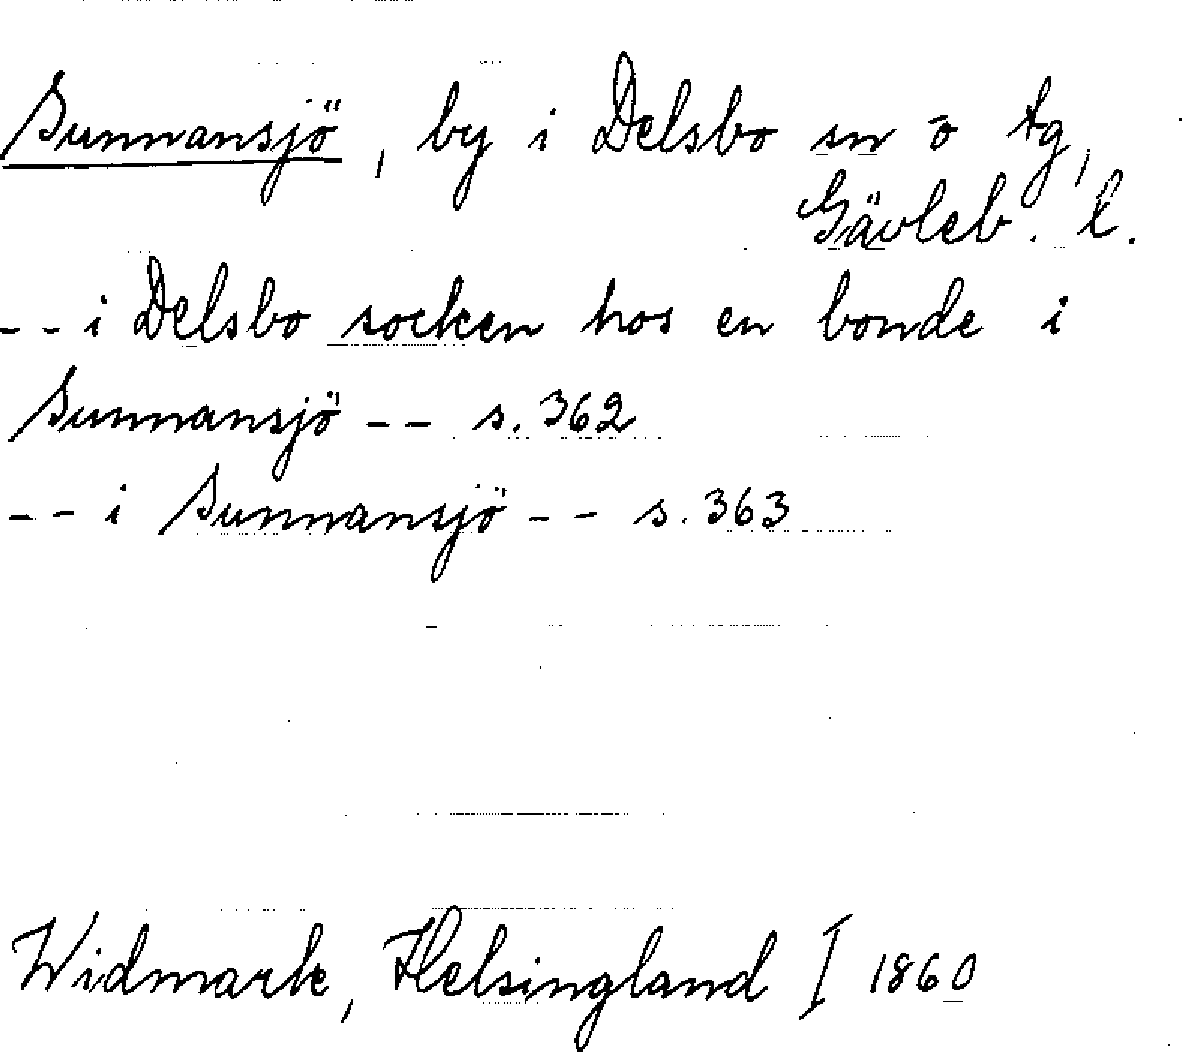 Sunnansjö, by i Delsbo sn o tg,
Gävleb. l.
-- i Delsbo socken hos en bonde i
Sunnansjö -- s. 362
-- i Sunnansjö -- s. 363
Widmark, Helsingland I 1860